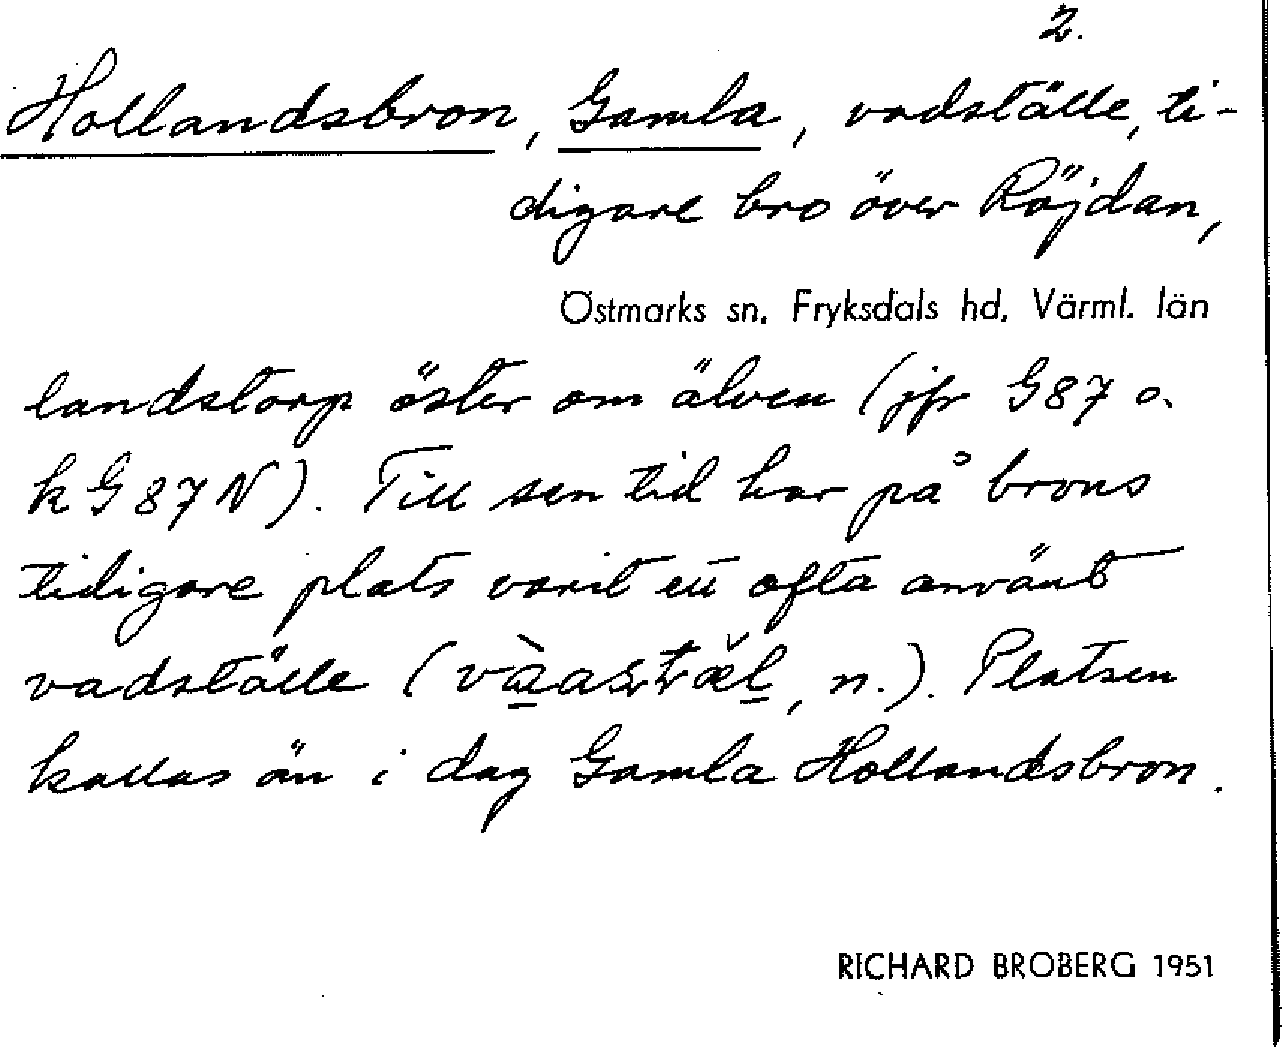 2.
Hollandsbron, Gamla, vadställe, ti-
digare bro över Röjdan,
Östmarks sn. Fryksdals hd. Värml. län
landstorp öster om älven (jfr G87 o.
kG87N). Till sen tid har på brons
tidigare plats varit ett ofta använt
vadställe (, n.). Platsen
kallas än i dag Gamla Hollandsbron.
RICHARD BROBERG 1951